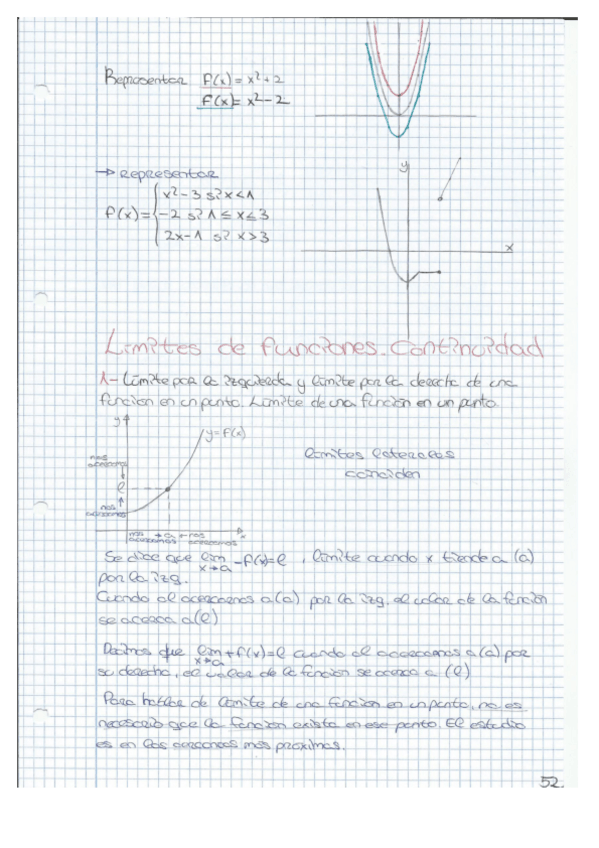 Representar f(x) = x² + 2
f(x) = x² - 2
→ representar
f(x) = { x² - 3 si x < 1
-2 si 1 ≤ x ≤ 3
2x - 1 si x > 3
y
x
Límites de funciones. Continuidad
1- Límite por la izquierda y límite por la derecha de una
función en un punto. Límite de una función en un punto.
y
y = f(x)
límites laterales
coinciden
nos
acercamos
l
nos
acercamos
nos → a ← nos
acercamos acercamos
x
Se dice que lim - f(x) = l , límite cuando x tiende a (a)
x→a
por la izq.
Cuando al acercarnos a (a) por la izq. el valor de la función
se acerca a (l)
Decimos que lim + f(x) = l cuando al acercarnos a (a) por
x→a
su derecha, el valor de la función se acerca a (l)
Para hablar de límite de una función en un punto, no es
necesario que la función exista en ese punto. El estudio
es en las cercanías más próximas.
52